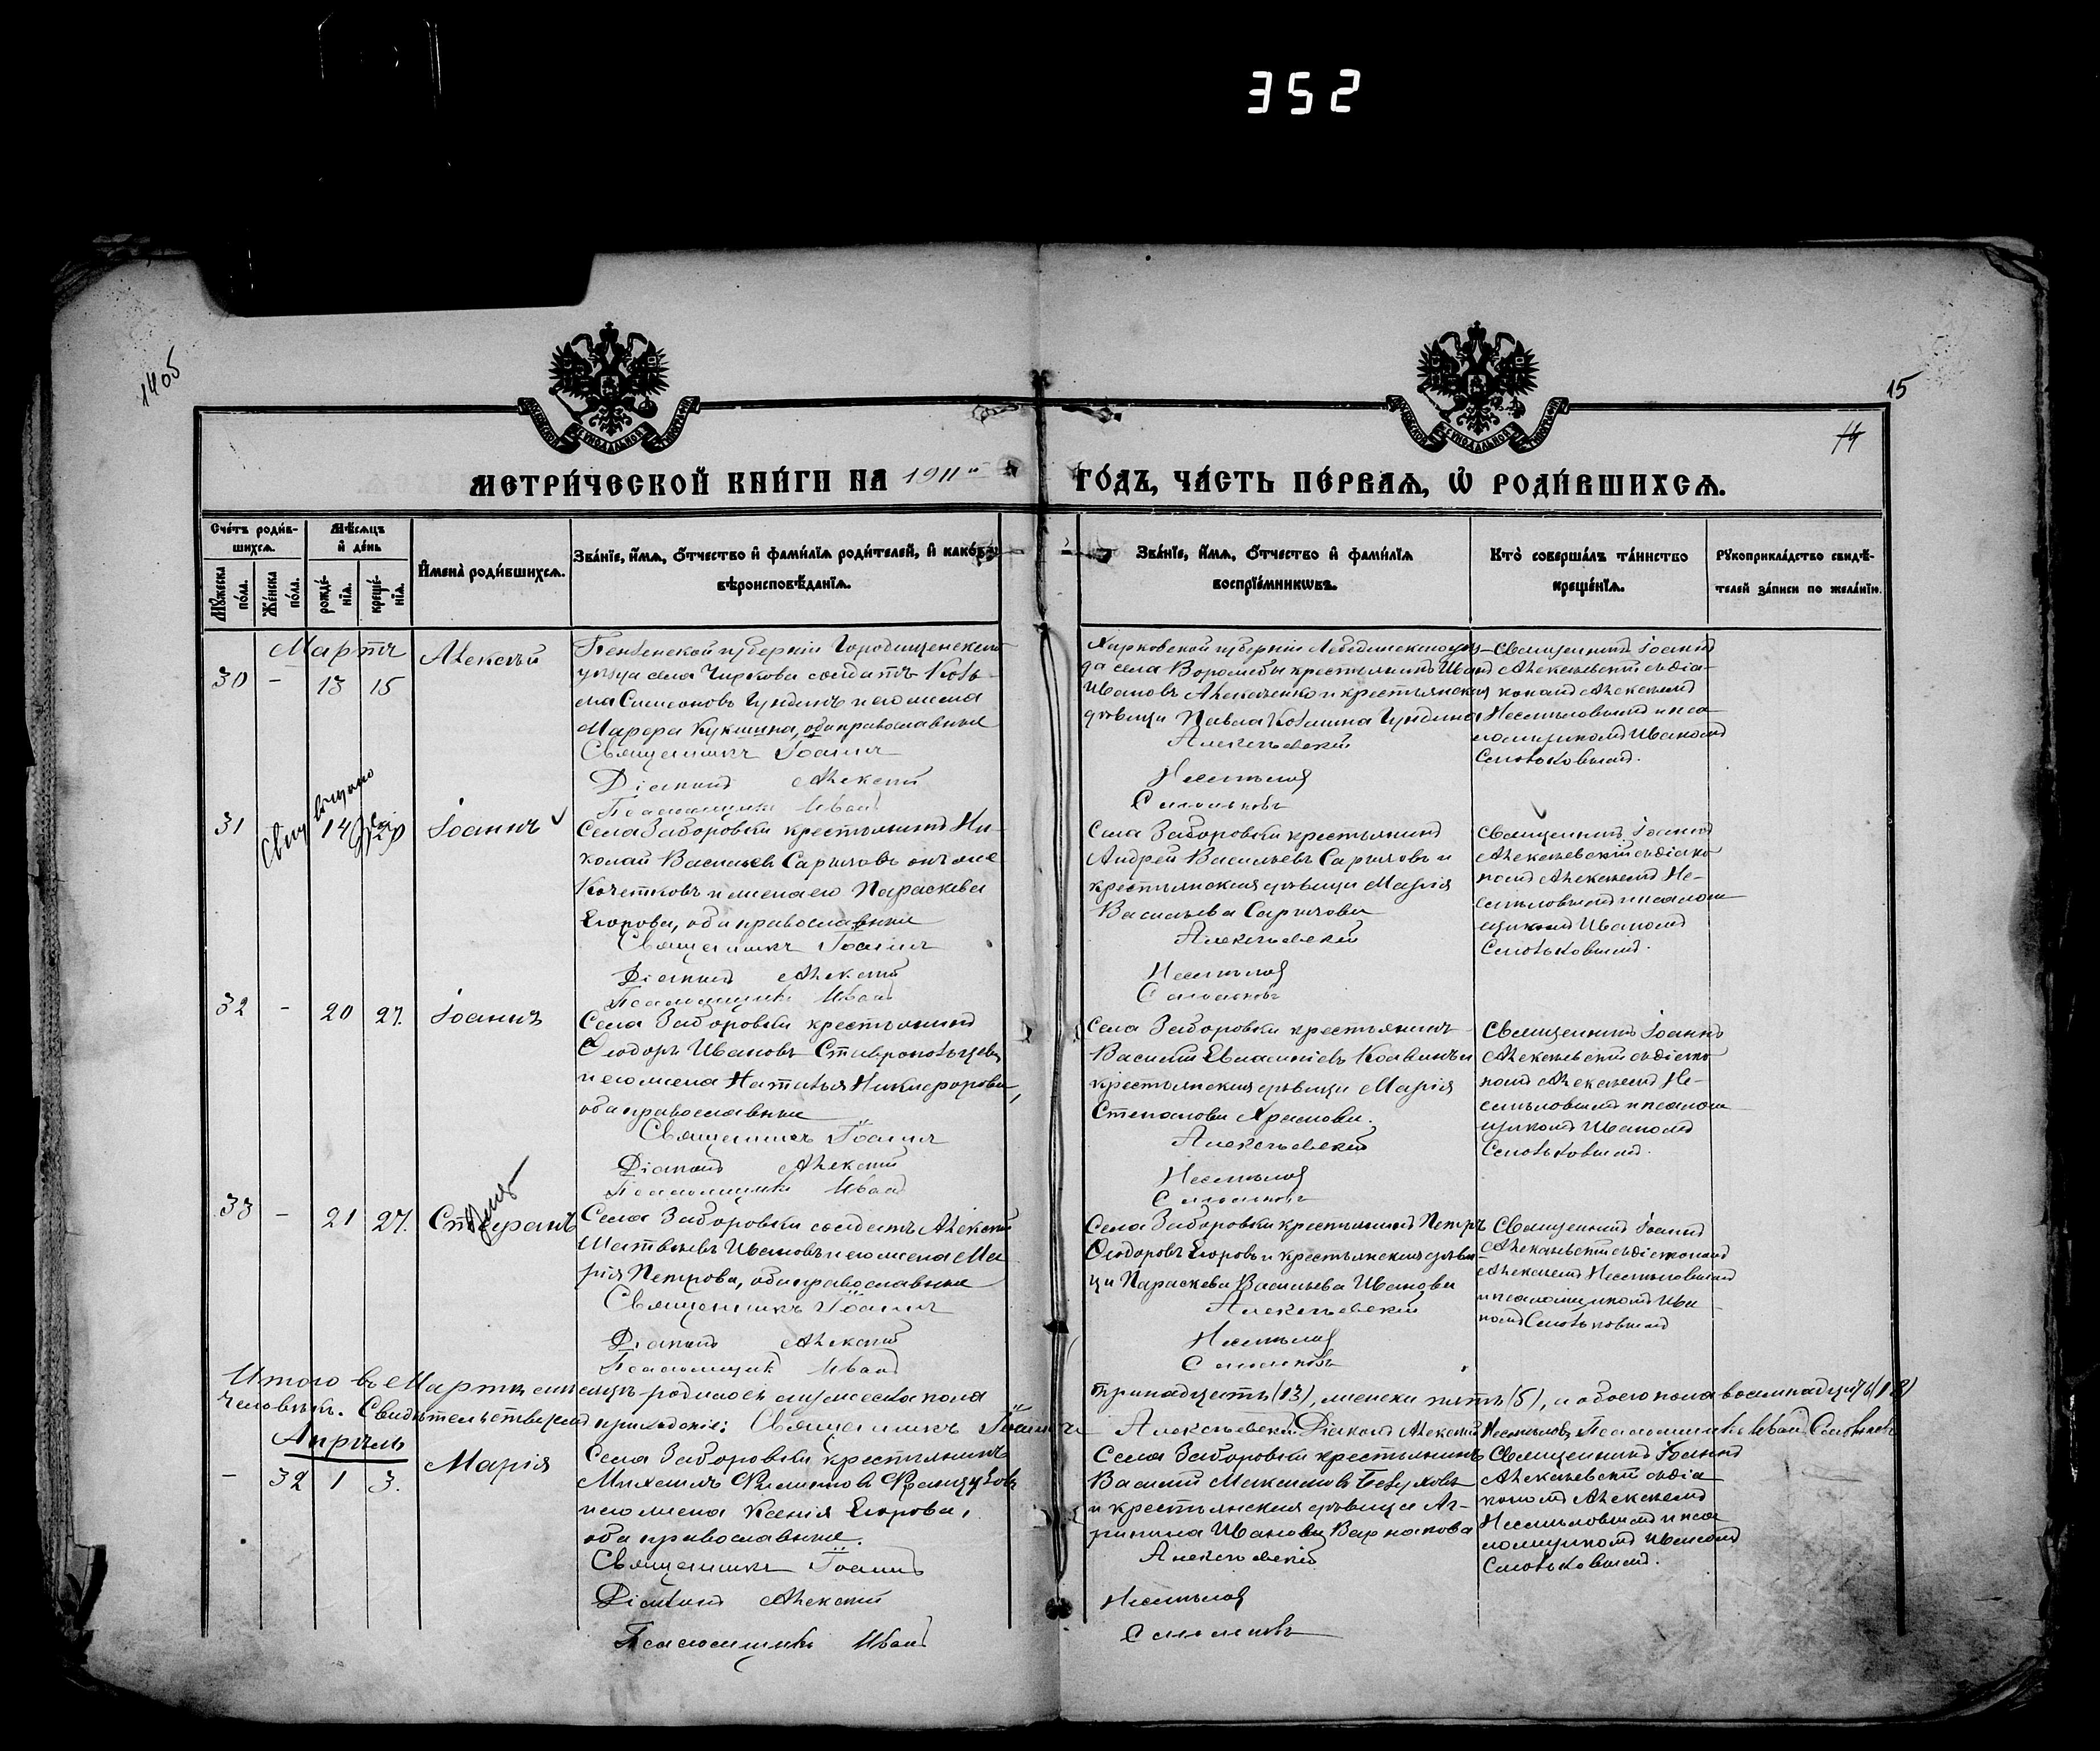 352
1405
15
14
МЕТРИ́ЧЕСКОЙ КНИ́ГИ НА 1911й
ГО́ДЪ, ЧА́СТЬ ПЕ́РВАѦ, Ѽ РОДИ́ВШИХСѦ.
Сче́тъ роди́в-
шихсѧ.
Мѣ́сѧцъ
и҆ де́нь
Мꙋ́жеска по́ла.
Же́нска по́ла.
рожде́-
нїѧ.
креще́-
нїѧ.
И҆мена̀ роди́вшихсѧ.
Зва́нїе, и҆́мѧ, ѻ҆́тчество и҆ фами́лїѧ роди́телей, и҆ како́гѡ
вѣроисповѣ́данїѧ.
Зва́нїе, и҆́мѧ, ѻ҆́тчество и҆ фами́лїѧ
воспрїе́мникѡвъ.
Кто̀ соверша́лъ та́инство
креще́нїѧ.
Рꙋкоприкла́дство свидѣ́-
телей за́писи по жела́нїю.
Мартъ
30 - 13 15
Алексѣй
Пензенской губерніи Городищенскаго
уѣзда села Чиркова солдатъ Козь-
ма Симеоновъ Гундинъ и его жена
Марѳа Кукшина, оба православные
Священникъ Іоаннъ
Діаконъ Алексѣй
Псаломщикъ Иванъ
Харковской губерніи Лебединскаго уѣз-
да села Ворожбы крестьянинъ Иванъ
Ивановъ Алексѣенко и крестьянская
дѣвица Павла Козьмина Гундина
Алексѣевскій
Несмѣловъ
Священникъ Іоаннъ
Алексѣевскій съ діа-
кономъ Алексѣемъ
Несмѣловымъ и пса-
ломщикомъ Иваномъ
31 - 14 20
Іоаннъ
Села Заборовки крестьянинъ Ни-
колай Васильевъ Сарычовъ онъ же
Кочетковъ и жена его Параскева
Егорова, оба православные
Священникъ Іоаннъ
Діаконъ Алексѣй
Псаломщикъ Иванъ
Села Заборовки крестьянинъ
Андрей Васильевъ Сарычовъ и
крестьянская дѣвица Марія
Васильева Сарычова
Алексѣевскій
Несмѣловъ
Священникъ Іоаннъ
Алексѣевскій съ діако-
номъ Алексѣемъ Не-
смѣловымъ и псалом-
щикомъ Иваномъ
32 - 20 27.
Іоаннъ
Села Заборовки крестьянинъ
Ѳеодоръ Ивановъ Ставропольцевъ
и его жена Наталья Никифорова,
оба православные
Священникъ Іоаннъ
Діаконъ Алексѣй
Псаломщикъ Иванъ
Села Заборовки крестьянинъ
крестьянская дѣвица Марія
Степанова Храмова.
Алексѣевскій
Несмѣловъ
Священникъ Іоаннъ
Алексѣевскій съ діако-
номъ Алексѣемъ Не-
смѣловымъ и псалом-
щикомъ Иваномъ
33 - 21 27.
Стефанъ
Села Заборовки солдатъ Алексѣй
Матвѣевъ Ивановъ и его жена Ма-
рія Петрова, оба православные
Священникъ Іоаннъ
Діаконъ Алексѣй
Псаломщикъ Иванъ
Села Заборовки крестьянинъ Петръ
Ѳеодоровъ Егоровъ и крестьянская дѣви-
ца Параскева Васильева Иванова
Алексѣевскій
Несмѣловъ
Священникъ Іоаннъ
Алексѣевскій съ діакономъ
Алексѣемъ Несмѣловымъ
и псаломщикомъ Ива-
номъ
Итого въ Мартѣ мѣсяцѣ родилось мужеска пола
тринадцать (13), женска пять (5), и обоего пола восемнадцать (18)
человѣкъ. Священникъ Іоаннъ
Алексѣевскій Діаконъ Алексѣй Несмѣловъ Псаломщикъ Иванъ
Апрѣль
- 32 1 3.
Марія
Села Заборовки крестьянинъ
Михаилъ Филиповъ Французовъ
и его жена Ксенія Егорова,
оба православные.
Священникъ Іоаннъ
Діаконъ Алексѣй
Псаломщикъ Иванъ
Села Заборовки крестьянинъ
Василій Максимовъ Безуховъ
и крестьянская дѣвица Аг-
рипина Иванова Варнакова
Алексѣевскій
Несмѣловъ
Священникъ Іоаннъ
Алексѣевскій съ діа-
кономъ Алексѣемъ
Несмѣловымъ и пса-
ломщикомъ Иваномъ